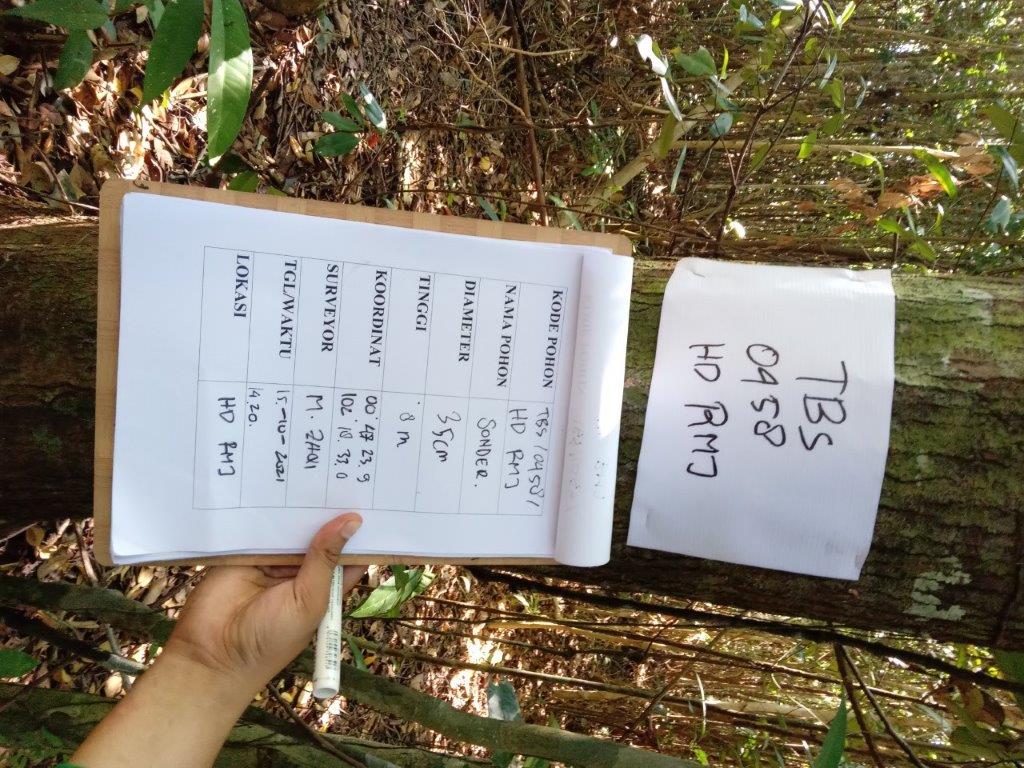 TBS
0458
HD RMJ
KODE POHON TBS/0458/
HD RMJ
NAMA POHON SONDER.
DIAMETER 35cm
TINGGI 8 m
KOORDINAT 00° 47 23.9
102 18. 33.0
SURVEYOR M. ZAQI
TGL/WAKTU 15-10-2021
14.20.
LOKASI HD RMJ